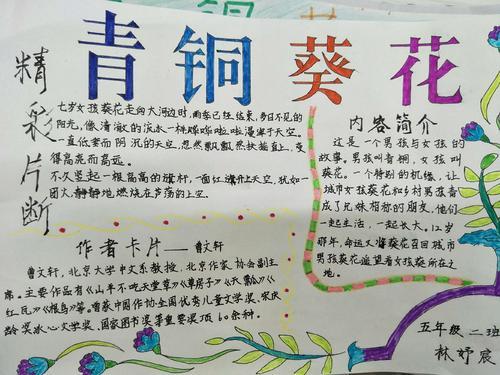 青铜葵花
精彩片断
七岁女孩葵花走向大河边时,雨季已经结束,多日不见的
阳光,像清澈的流水一样哗啦啦漫泻于天空。
一直低垂而阴沉的天空,忽然飘飘然扶摇直上,变
得高亮而高远。
不久竖起一根高高的旗杆,一面红旗升上天空,犹如一
团火,静静地燃烧在芦荡的上空。
作者卡片——曹文轩
曹文轩,北京大学中文系教授,北京作家协会副主
席。主要作品有《山羊不吃天堂草》《草房子》《天瓢》《
红瓦》《根鸟》等。曾获中国作协全国优秀儿童文学奖、宋庆
龄奖冰心文学奖、国家图书奖等重要奖项60余种。
内容简介
这是一个男孩与女孩的
故事。男孩叫青铜,女孩叫
葵花。一个特别的机缘,让
城市女孩葵花和乡村男孩青
成了兄妹相称的朋友,他们
一起生活,一起长大。12岁
那年,命运又将葵花召回城市
男孩葵花遥望着女孩葵所在之
地。
五年级二班
林妤宸